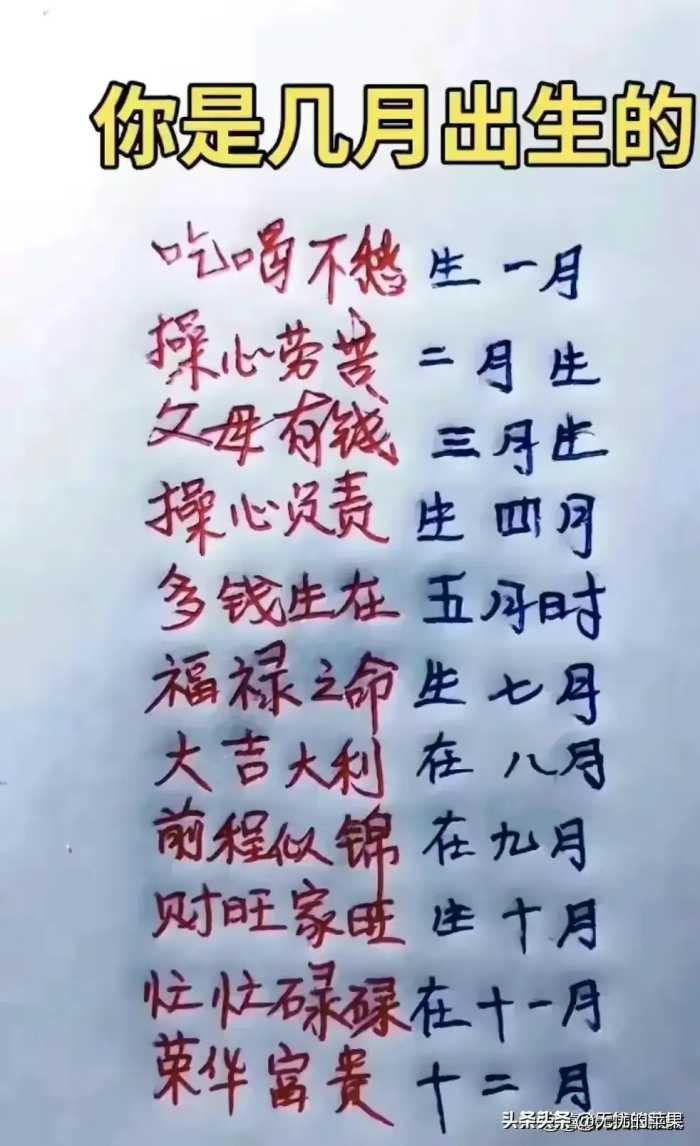 你是几月出生的
吃喝不愁生一月
操心劳苦二月生
父母有钱三月生
操心负责生四月
多钱生在五月时
福禄之命生七月
大吉大利在八月
前程似锦在九月
财旺家旺生十月
忙忙碌碌在十一月
荣华富贵十二月
头条头条@无忧的苹果